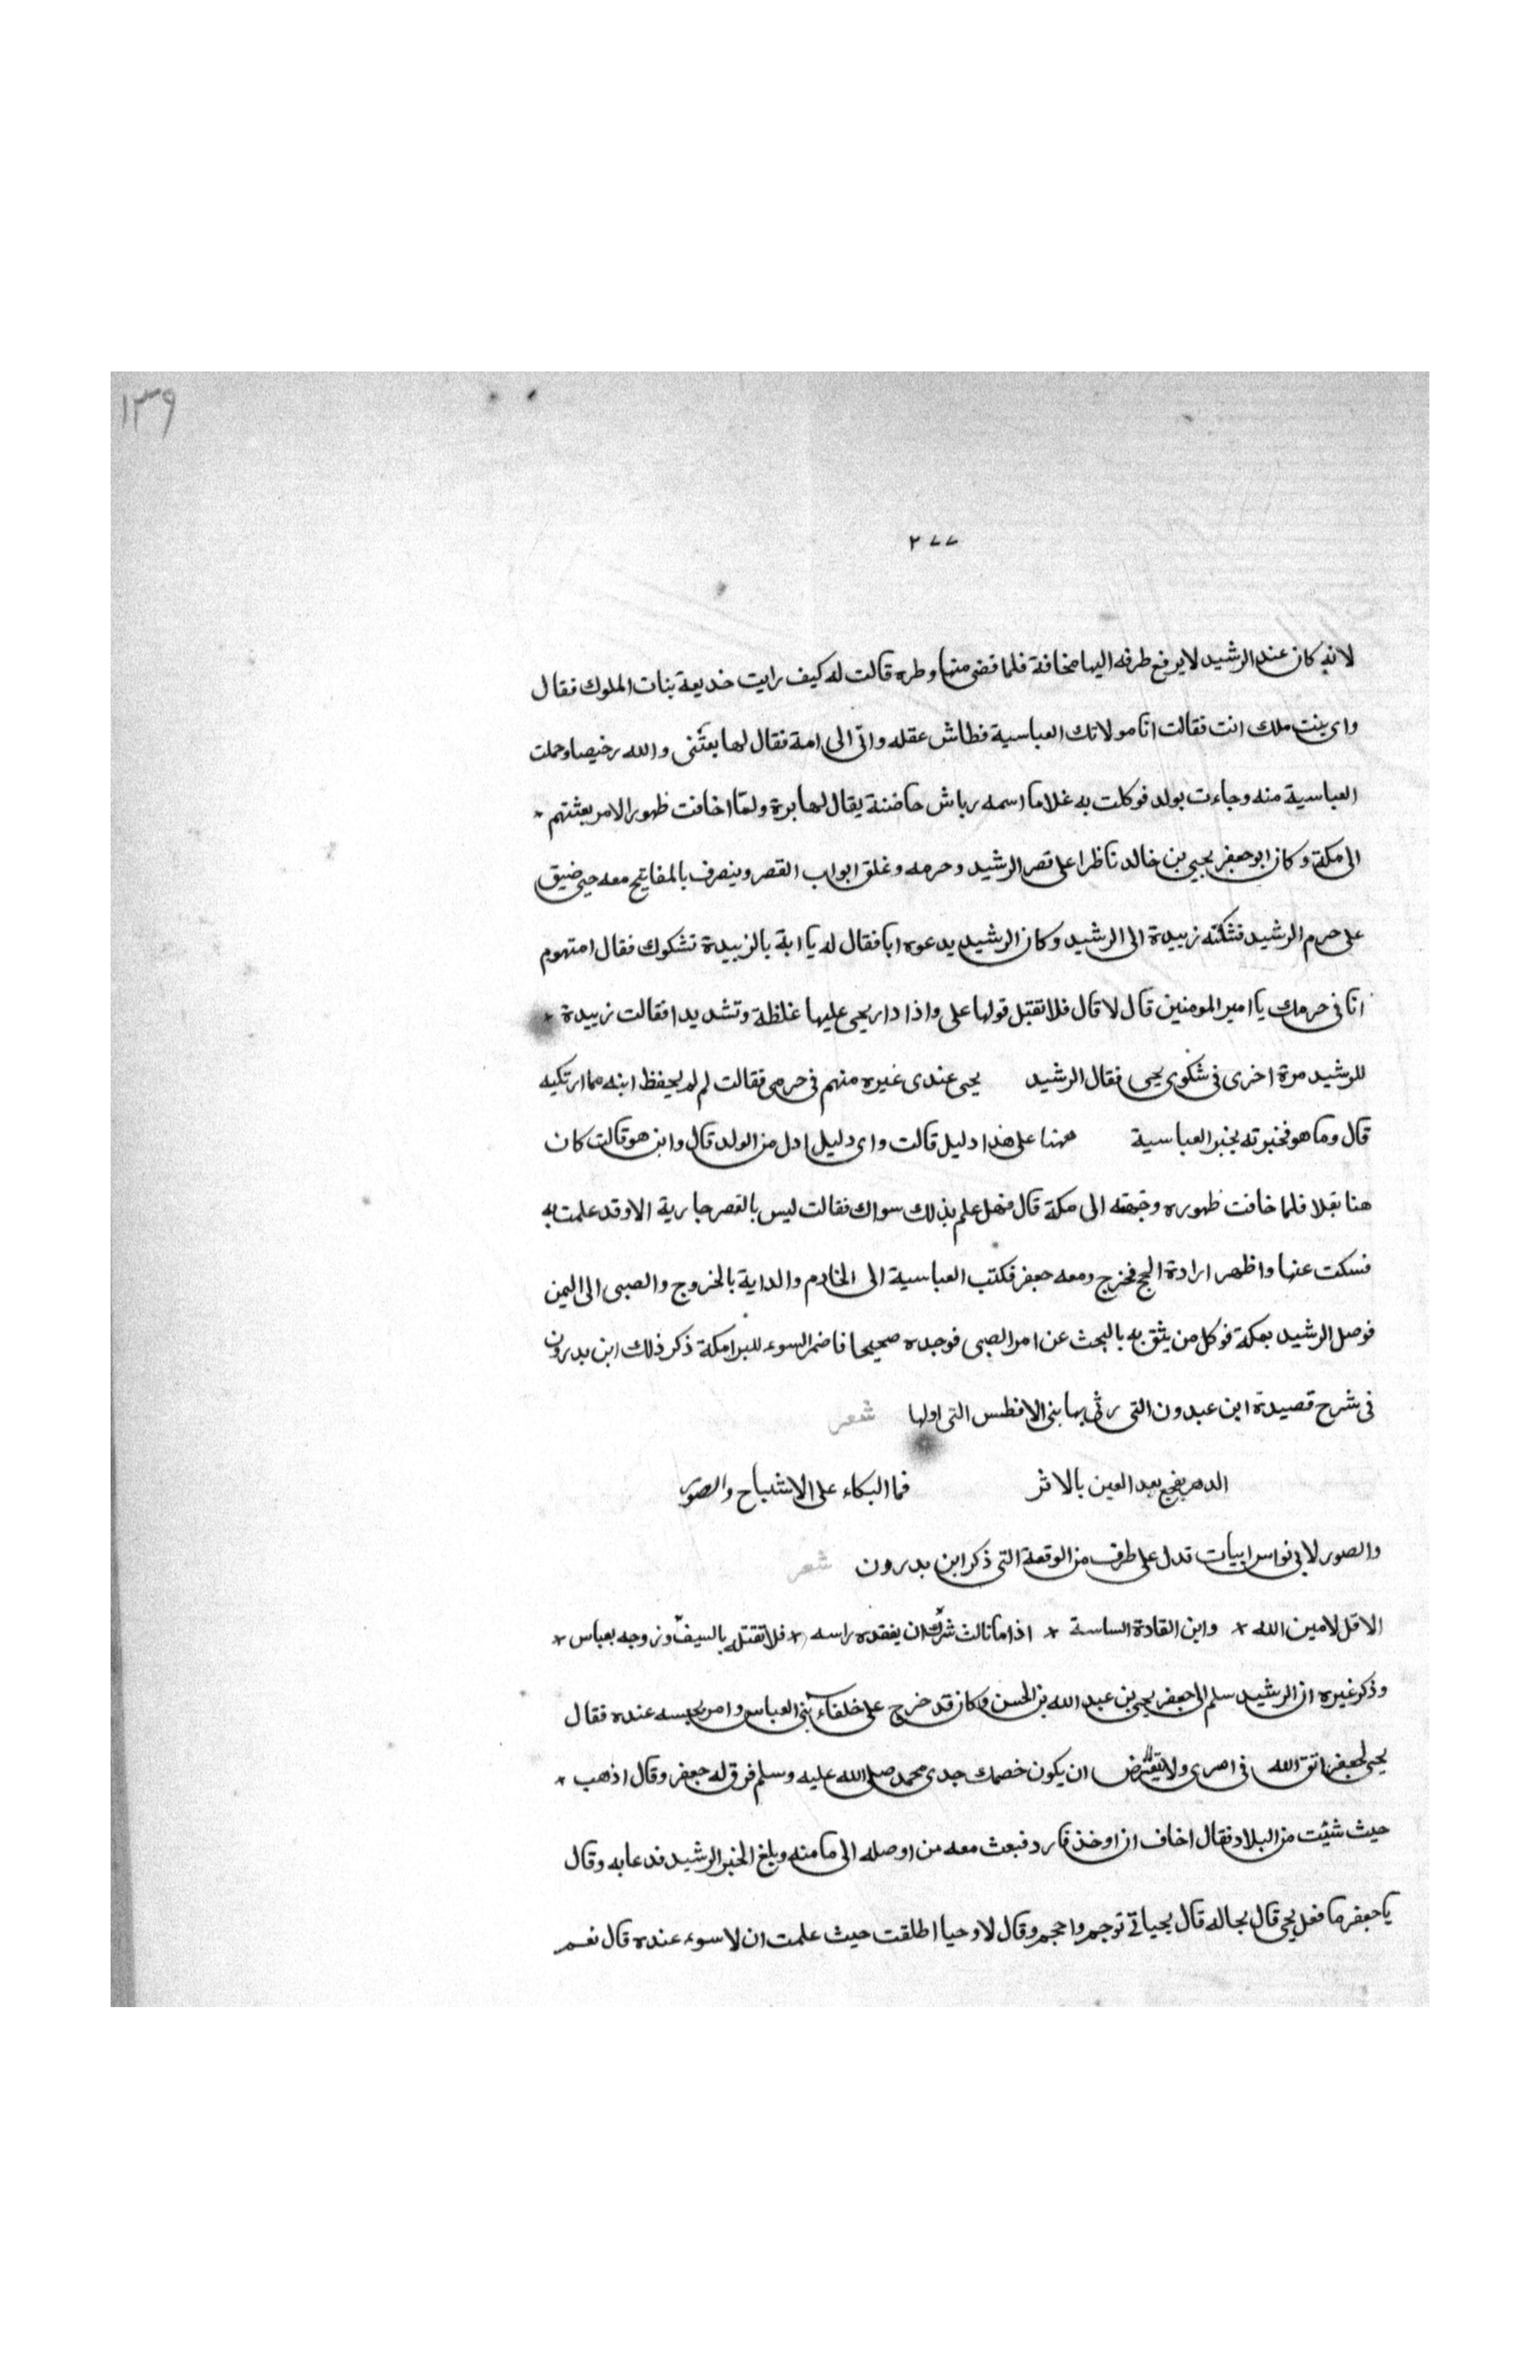 ١٣٩
٢٧٧
لانه كان عند الرشيد لا يرفع طرفه اليها مخافة فلما قضى منها وطره قالت له كيف رايت خديعة بنات الملوك فقال
واى بنت ملك انت فقالت انا مولاتك العباسية فطاش عقله واتى الى امة فقال لها بعثنى والله رخيصا وحملت
العباسية منه وجاءت بولد فوكلت به غلاما اسمه رباش حاضنة يقال لها برة ولما اخافت ظهور الامر بعثتهم
الى مكة وكان ابو جعفر يحيى بن خالد ناظرا على قصر الرشيد وحرمه وغلق ابواب القصر وينصرف بالمفاتيح معه حتى ضيق
على حرم الرشيد فشكته زبيدة الى الرشيد وكان الرشيد يدعوه ابا فقال له يا ابة بالزبيدة تشكوك فقال امتهوم
انا فى حرمك يا امير المومنين قال لا قال فلا تقبل قولها على واذا دار يحيى عليها غلظة وتشديدا فقالت زبيدة
للرشيد مرة اخرى فى شكوى يحيى فقال الرشيد يحيى عندى غيره منهم فى حرمى فقالت لم لم يحفظ ابنه مما ارتكبه
قال وما هو فخبرته بخبر العباسية هذا دليل قالت واى دليل ادل من الولد قال واين هو قالت كان
هنا فلما خافت ظهوره وجهته الى مكة قال فهل علم بذلك سواك فقالت ليس بالقصر جارية الا وقد علمت به
فسكت عنها واظهر ارادة الحج فخرج ومعه جعفر فكتب العباسية الى الخادم والداية بالخروج والصبى الى اليمن
فوصل الرشيد بمكة فوكل من يثق به بالبحث عن امر الصبى فوجده صحيحا فاضمر السوء للبرامكة ذكر ذلك ابن بدرون
فى شرح قصيدة ابن عبدون التى رثى بها بنى الافطس التى اولها شعر
الدهر يفجع بعد العين بالاثر فما البكاء على الاشباح والصور
والصور لابى نواس ابيات تدل على طرف من الوقعة التى ذكر ابن بدرون شعر
الا قل لامين الله * وابن القادة الساسة * اذا ما نالث ان يفقده راسه * فلا تقتله بالسيف وزوجه بعباس *
وذكر غيره ان الرشيد سلم الى جعفر يحيى بن عبد الله بن الحسن وكان قد خرج على خلفاء بنى العباس وامر بحبسه عنده فقال
يحيى لجعفر اتق الله فى امرى ولا ان يكون خصمك جدى محمد صلى الله عليه وسلم فرق له جعفر وقال اذهب *
حيث شئت من البلاد فقال اخاف ان اوخذ فارد فبعث معه من اوصله الى مامنه وبلغ الخبر الرشيد فدعا به وقال
يا جعفر ما فعل يحيى قال بحاله قال بحياتى فوجم واحجم وقال لا وحيا اطلقت حيث علمت ان لا سوء عنده قال نعم